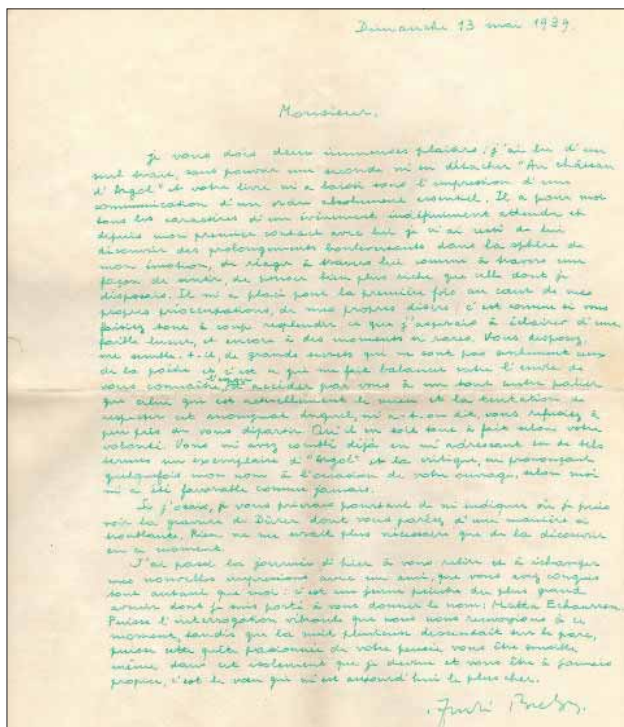 Dimanche 13 mai 1939.
Monsieur,
je vous dois deux immenses plaisirs : j'ai lu d'un
seul trait, sans pouvoir une seconde m'en détacher "Au château
d'Argol" et votre livre m'a laissé sous l'impression d'une
communication d'un ordre absolument essentiel. Il a pour moi
tous les caractères d'un événement indéfiniment attendu et
depuis mon premier contact avec lui je n'ai cessé de lui
découvrir des prolongements bouleversants dans la sphère de
mon émotion, de réagir à travers lui comme à travers une
façon de sentir, de penser bien plus riche que celle dont je
disposais. Il m'a placé pour la première fois au cœur de mes
propres préoccupations, de mes propres désirs : c'est comme si vous
faisiez tout à coup resplendir ce que j'aspirais à éclairer d'une
faible lueur, et encore à des moments si rares. Vous disposez,
me semble-t-il, de grands secrets qui ne sont pas seulement ceux
de la poésie et c'est ce qui me fait balancer entre l'envie de
vous connaître, d'essayer d'accéder par vous à un tout autre palier
que celui qui est actuellement le mien et la tentation de
respecter cet anonymat duquel, m'a-t-on dit, vous refusiez à
peu près de vous départir. Qu'il en soit tout à fait selon votre
volonté. Vous m'avez comblé déjà en m'adressant en de tels
termes un exemplaire d'"Argol" et la critique, en prononçant
quelquefois mon nom à l'occasion de votre ouvrage, selon moi
m'a été favorable comme jamais.
Si j'osais, je vous prierais pourtant de m'indiquer où je puis
voir la gravure de Dürer dont vous parlez d'une manière si
troublante. Rien ne me serait plus nécessaire que de la découvrir
en ce moment.
J'ai passé la journée d'hier à vous relire et à échanger
mes nouvelles impressions avec un ami, que vous avez conquis
tout autant que moi : c'est un jeune peintre du plus grand
avenir dont je suis porté à vous donner le nom : Matta Echaurren.
Puisse l'interrogation vibrante que nous nous renvoyions à ce
moment, tandis que la nuit pluvieuse descendait sur le parc,
puisse cette quête passionnée de votre pensée vous être sensible
même dans cet isolement que je devine et vous être à jamais
propice, c'est le vœu qui m'est aujourd'hui le plus cher.
André Breton.